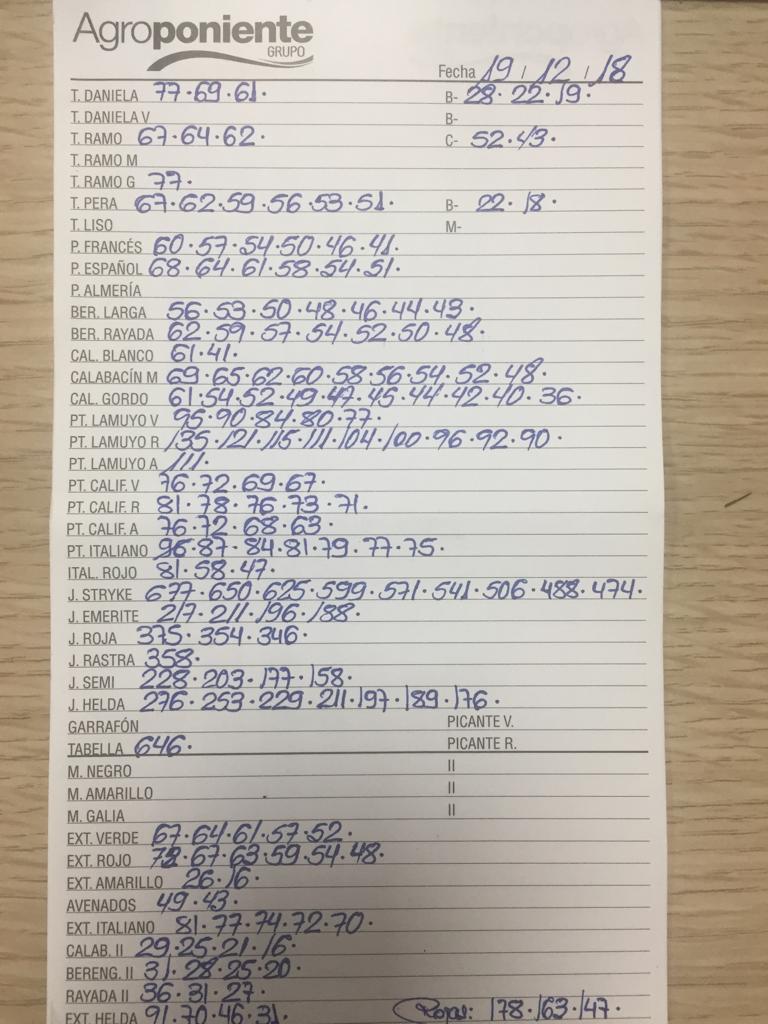 Agroponiente
GRUPO
Fecha 19 / 12 / 18
T. DANIELA 77·69·61· B- 28·22·19·
T. DANIELA V B-
T. RAMO 67·64·62· C- 52·43·
T. RAMO M
T. RAMO G 77·
T. PERA 67·62·59·56·53·51· B- 22·18·
T. LISO M-
P. FRANCÉS 60·57·54·50·46·41·
P. ESPAÑOL 68·64·61·58·54·51·
P. ALMERÍA
BER. LARGA 56·53·50·48·46·44·43·
BER. RAYADA 62·59·57·54·52·50·48·
CAL. BLANCO 61·41·
CALABACÍN M 69·65·62·60·58·56·54·52·48·
CAL. GORDO 61·54·52·49·47·45·44·42·40·36·
PT. LAMUYO V 95·90·84·80·77·
PT. LAMUYO R 135·121·115·111·104·100·96·92·90·
PT. LAMUYO A 111·
PT. CALIF. V 76·72·69·67·
PT. CALIF. R 81·78·76·73·71·
PT. CALIF. A 76·72·68·63·
PT. ITALIANO 96·87·84·81·79·77·75·
ITAL. ROJO 81·58·47·
J. STRYKE 677·650·625·599·571·541·506·488·474·
J. EMERITE 217·211·196·188·
J. ROJA 375·354·346·
J. RASTRA 358·
J. SEMI 228·203·177·158·
J. HELDA 276·253·229·211·197·189·176·
GARRAFÓN PICANTE V.
TABELLA 646· PICANTE R.
M. NEGRO II
M. AMARILLO II
M. GALIA II
EXT. VERDE 67·64·61·57·52·
EXT. ROJO 72·67·63·59·54·48·
EXT. AMARILLO 26·16·
AVENADOS 49·43·
EXT. ITALIANO 81·77·74·72·70·
CALAB. II 29·25·21·16·
BERENG. II 31·28·25·20·
RAYADA II 36·31·27·
EXT. HELDA 91·70·46·31· Rojas: 178·163·147·